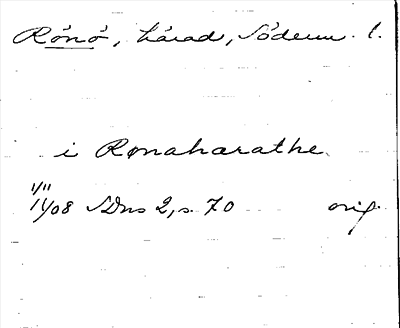 Rönö, härad, Söderm. l.
i Rønaharathe
1/11
1408 SDns 2, s. 70 orig.